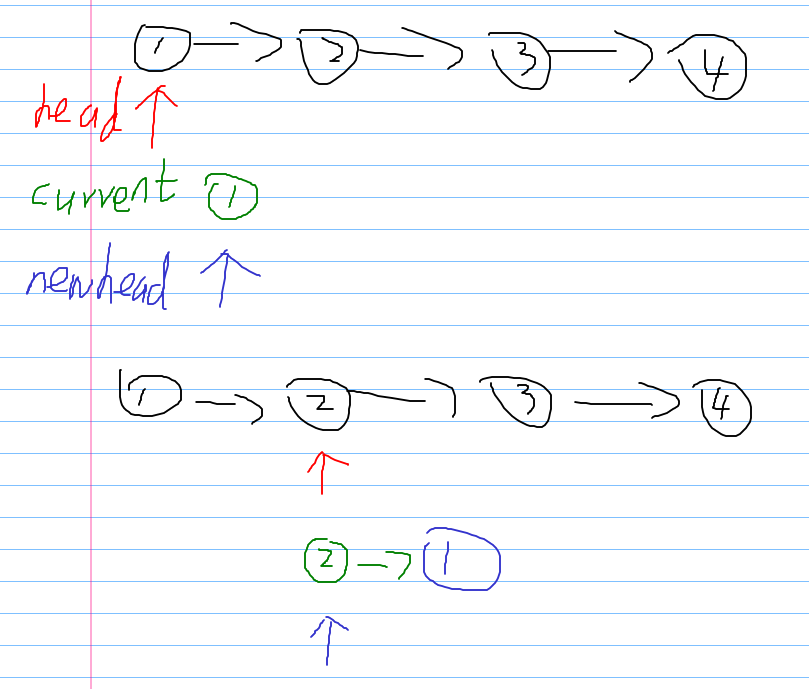 1 → 2 → 3 → 4
head ↑
current 1
newhead ↑
1 → 2 → 3 → 4
↑
2 → 1
↑